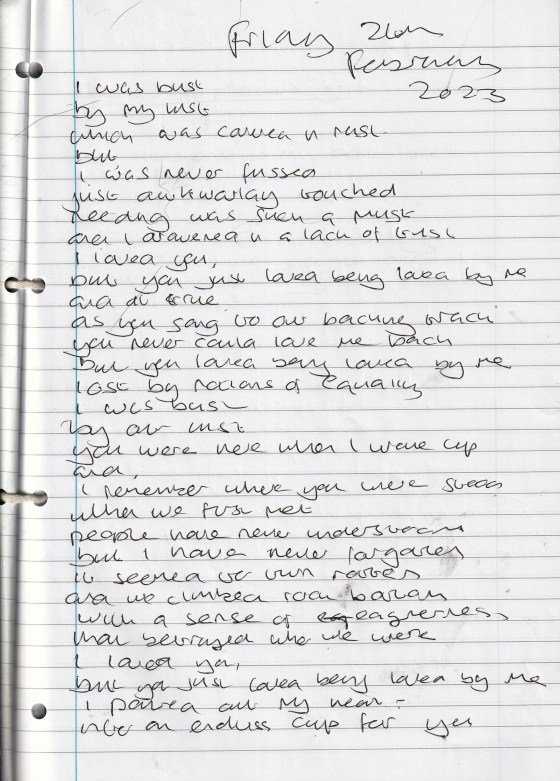 Friday 24th
February
2023
I was bust
by my lust
which was covered in rust
but
I was never fussed
just awkwardly touched
needing was such a must
and I drowned in a lack of trust
I loved you,
but you just loved being loved by me
and at
as you sang to our backing track
you never could love me back
but you loved being loved by me
lost by notions of equality
I was bust
by our lust
you were here when I woke up
and,
I remember where you were stood
when we first met
people have never understood
but I have never forgotten
it seemed
and we climbed
with a sense of eagerness
that betrayed who we were
I loved you,
but you just loved being loved by me
I poured out my heart -
into an endless cup for you